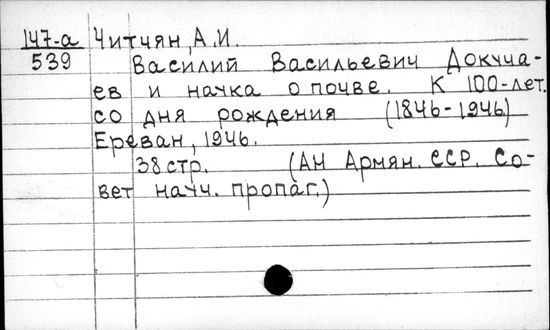 147-а Читчян, А.И.
539 Василий Васильевич Докуча-
ев и наука о почве. К 100-лет.
со дня рождения (1846-1946)
Ереван, 1946.
38 стр. (АН Армян. ССР. Со-
вет научн. пропаг.)